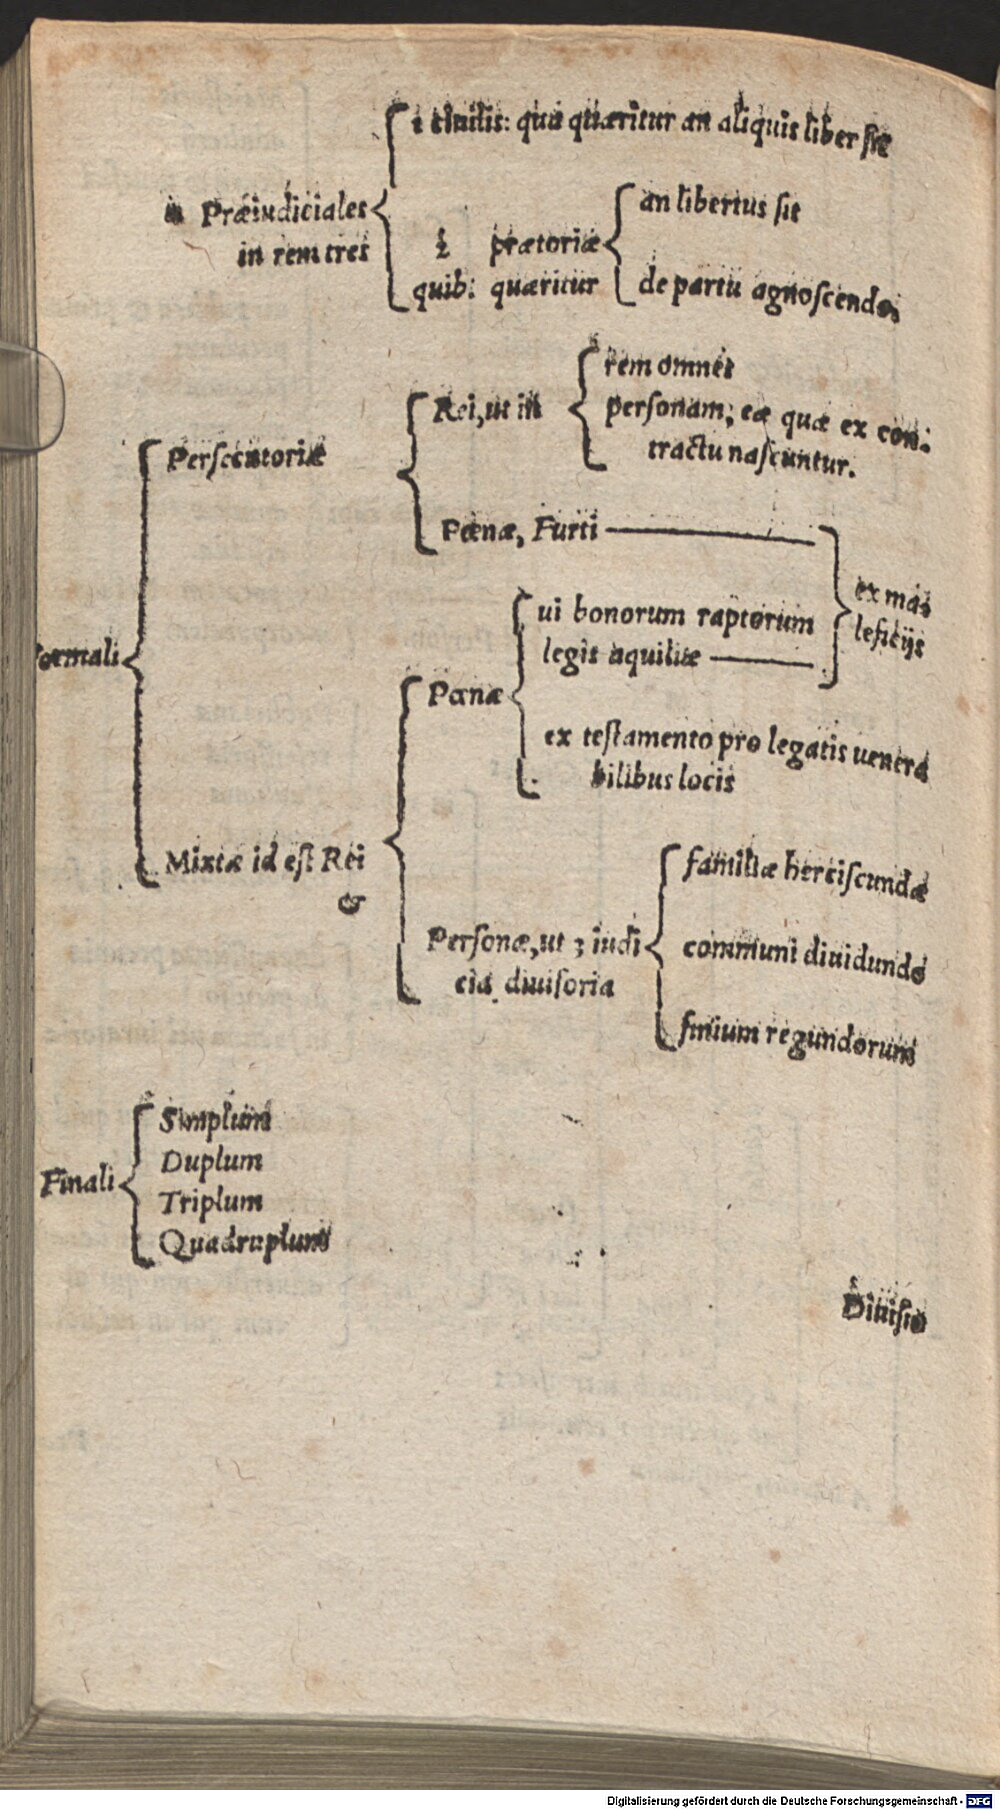 1 ciuilis: qua quæritur an aliquis liber sit
Præiudiciales
in rem tres
2 prætoriæ
quib: quæritur
an libertus sit
de partu agnoscendo;
Persecutoriæ
Rei, ut in
rem omnes
personam; eæ quæ ex con-
tractu nascuntur.
Pœnæ, Furti
ex ma-
leficijs
Formali
Pœnæ
ui bonorum raptorum
legis aquiliæ
ex testamento pro legatis uenera
bilibus locis
Mixtæ id est Rei
&
Personæ, ut 3 iudi
cia diuisoria
familiæ herciscundæ
communi diuidundo
finium regundorum
Finali
Simplum
Duplum
Triplum
Quadruplum
Diuisio
Digitalisierung gefördert durch die Deutsche Forschungsgemeinschaft - DFG